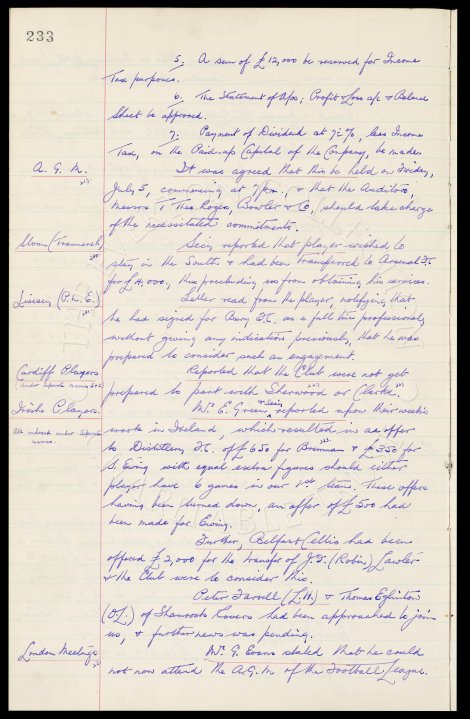 233
5; A sum of £12,000 be reserved for Income
Tax purposes.
6. The Statement of A/cs, Profit & Loss a/c & Balance
Sheet be approved.
7; Payment of Dividend at 7½%, less Income
Tax, on the Paid-up Capital of the Company, be made.
A. G. M. It was agreed that this be held on Friday,
July 5, commencing at 7pm., & that the Auditors,
Messrs T. Theo. Rogers, Bowler & Co, should take charge
of the necessitated commitments.
Sloan (Tranmere) Secy. reported that player wished to
stay in the South & had been transferred to Arsenal F.C.
for £4,000, thus precluding us from obtaining his services.
Livesey (P.N.E.) Letter read from the player, notifying that
he had signed for Bury F.C. as a full time professional,
without giving any indication previously that he was
prepared to consider such an engagement.
Cardiff Players Reported that the Club were not yet
(under separate names 300
prepared to part with Sherwood or Clarke.
Irish Players. Mr. E. Green & Secy. reported upon their week's
All indexed under separate
names.
work in Ireland, which resulted in an offer
to Distillery F.C. of £650 for Brennan & £350 for
S. Ewing with equal extra figures should either
player have 6 games in our 1st team. These offers
having been turned down, an offer of £500 had
been made for Ewing.
Further, Belfast Celtic had been
offered £2,000 for the transfer of J.F. (Robin) Lawler
& the Club were to consider this.
Peter Farrell (L.H.) & Thomas Eglinton
(O.L.) of Shamrock Rovers had been approached to join
us, & further news was pending.
London Meetings Mr. G. Evans stated that he could
not now attend the A.G.M. of the Football League.